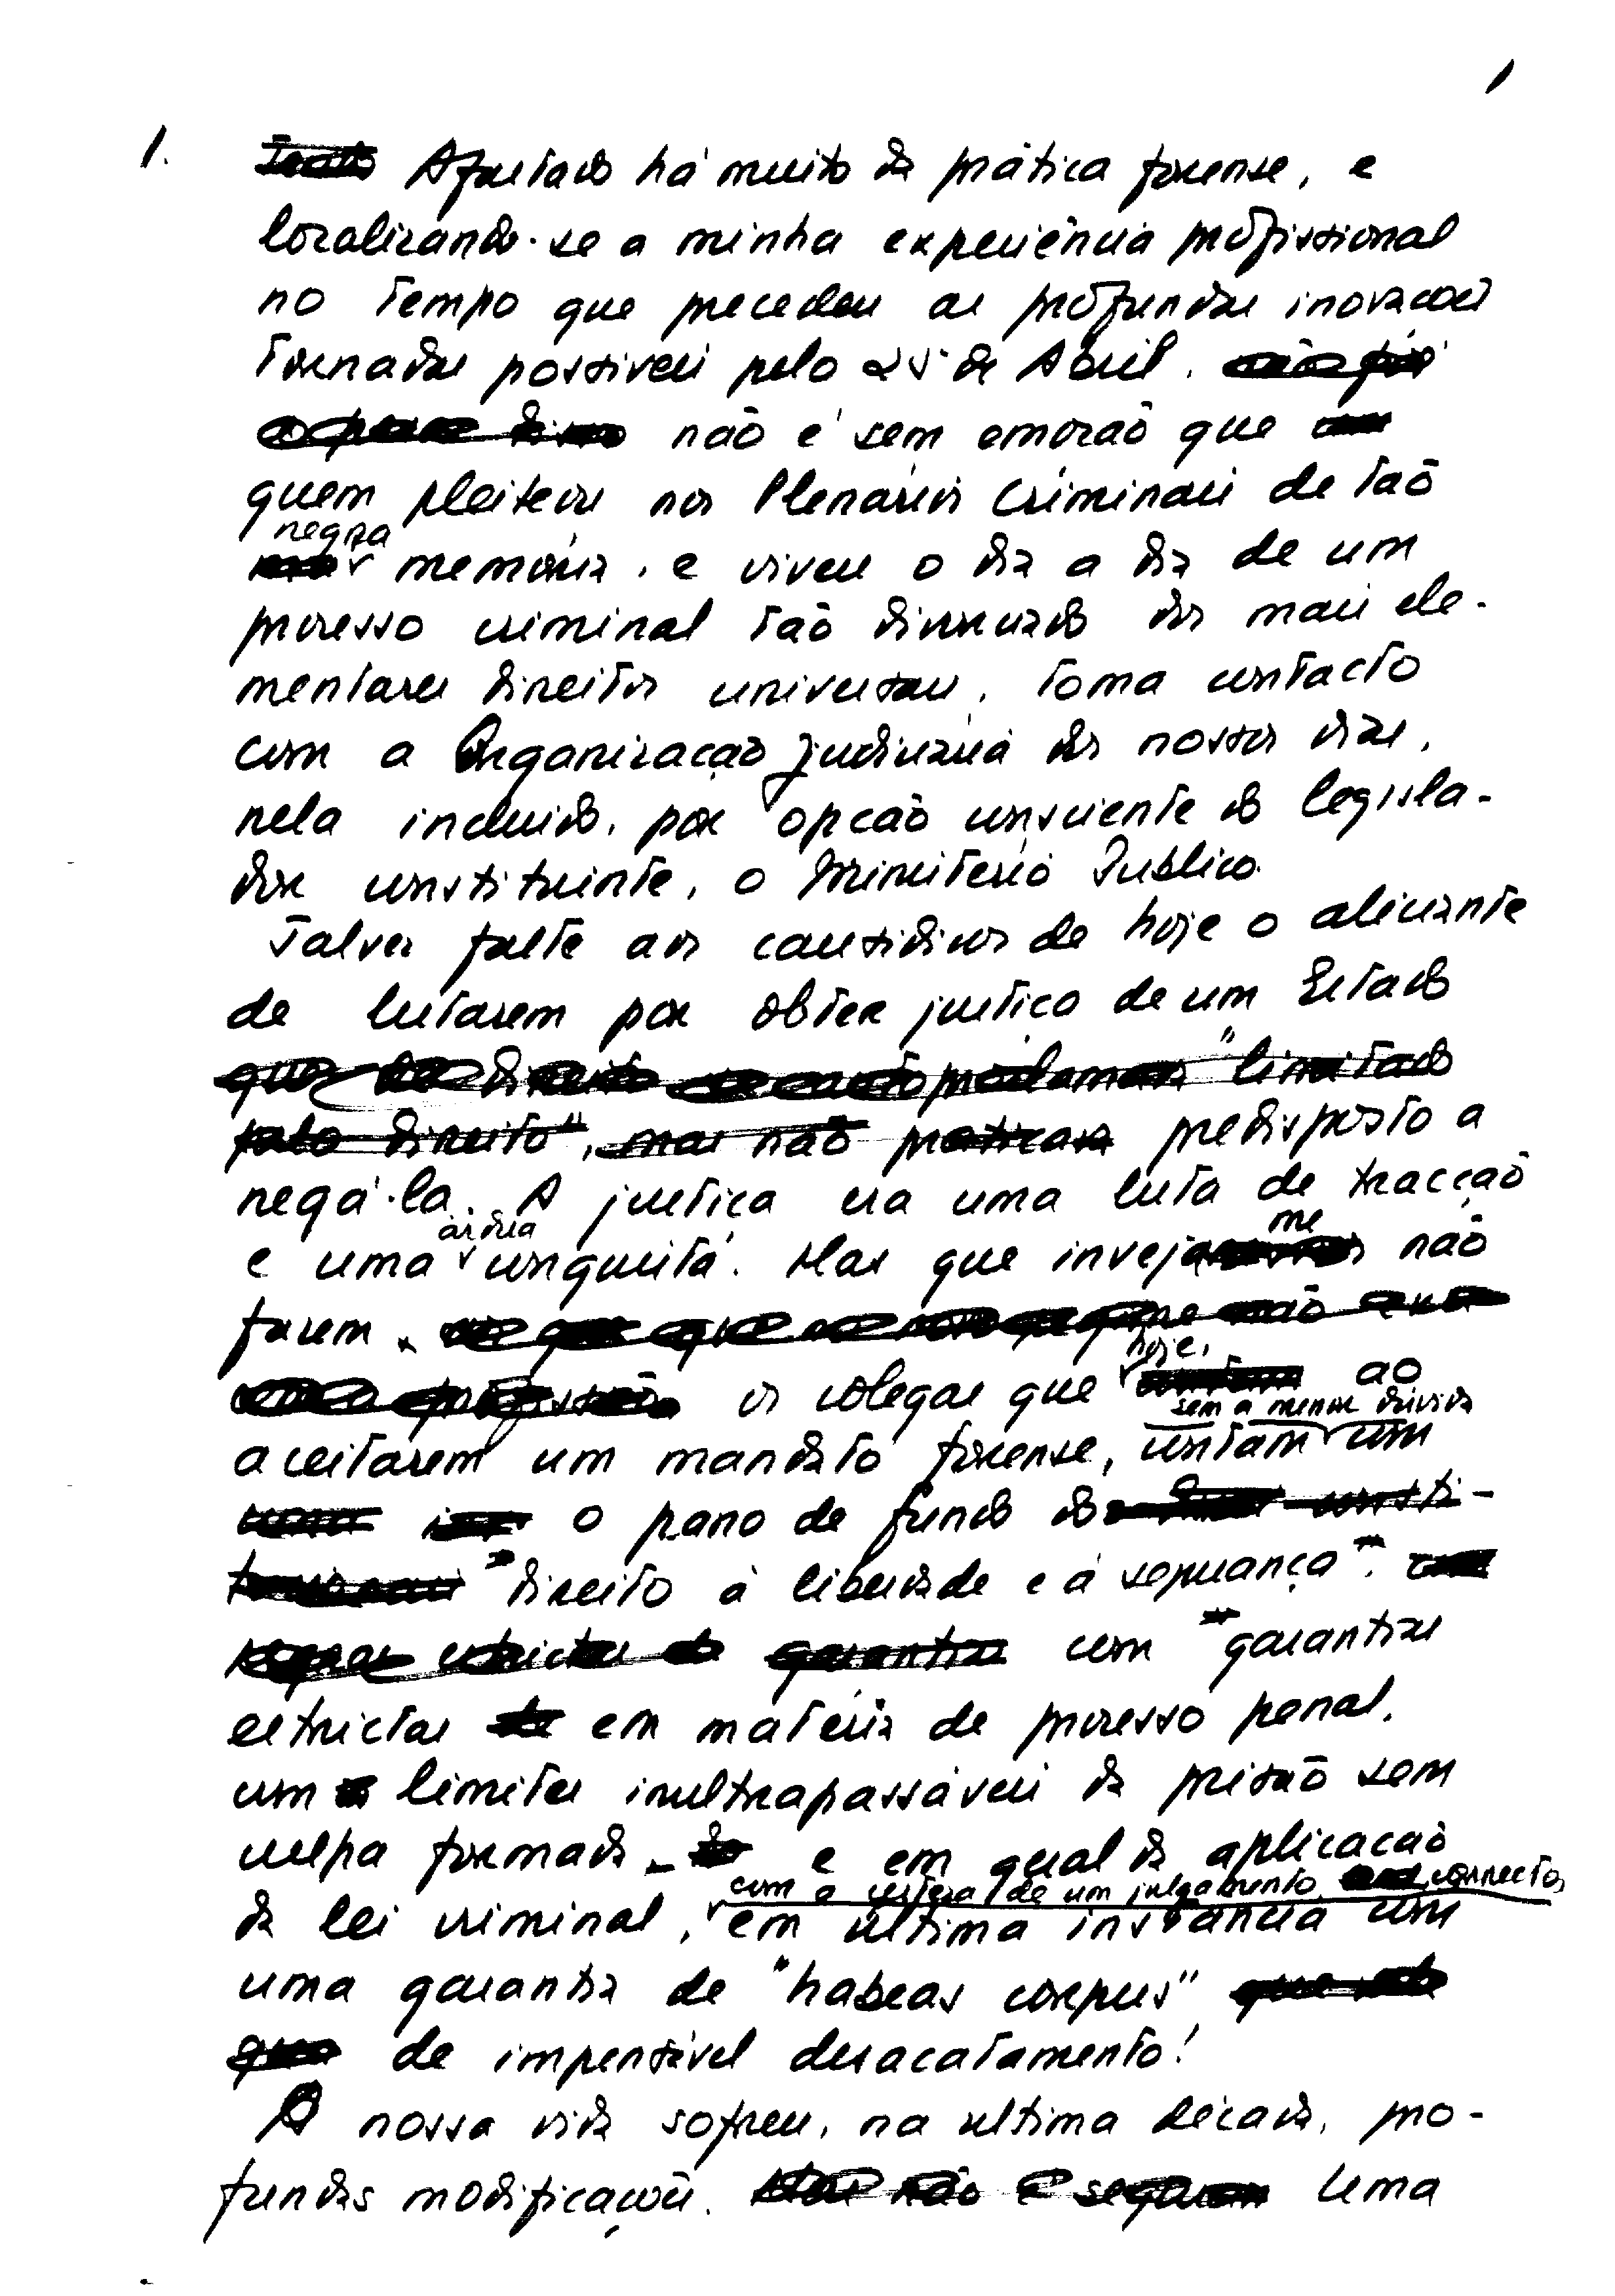 1
1. Afastado há muito da prática forense, e
localizando-se a minha experiência profissional
no tempo que precedeu as profundas inovações
tornadas possíveis pelo 25 de Abril,
não é sem emoção que
quem pleiteou nos Plenários Criminais de tão
negra
memória, e viveu o dia a dia de um
processo criminal tão divorciado dos mais ele-
mentares direitos universais, toma contacto
com a Organização judiciária dos nossos dias,
nela incluído, por opção consciente do legisla-
dor constituinte, o Ministério Público.
Talvez falte aos causídicos de hoje o aliciante
de lutarem por obter justiça de um Estado
que de direito se autoproclamava "limitado
pelo direito", mas não praticava predisposto a
negá-la. A justiça era uma luta de tracção
árdua me
e uma conquista. Mas que inveja não
fazem
hoje,
os colegas que ao
sem a menor dúvida
aceitarem um mandato forense, contam com
o pano de fundo do consti-
"direito à liberdade e à segurança",
regras estrictas de garantias com "garantias
estrictas em matéria de processo penal,
com limites inultrapassáveis da prisão sem
culpa formada e em geral da aplicação
com a certeza de um julgamento correcto,
da lei criminal, em última instância com
uma garantia de "habeas corpus"
de impensável desacatamento!
A nossa vida sofreu, na última década, pro-
fundas modificações. Mas não é seguro Uma